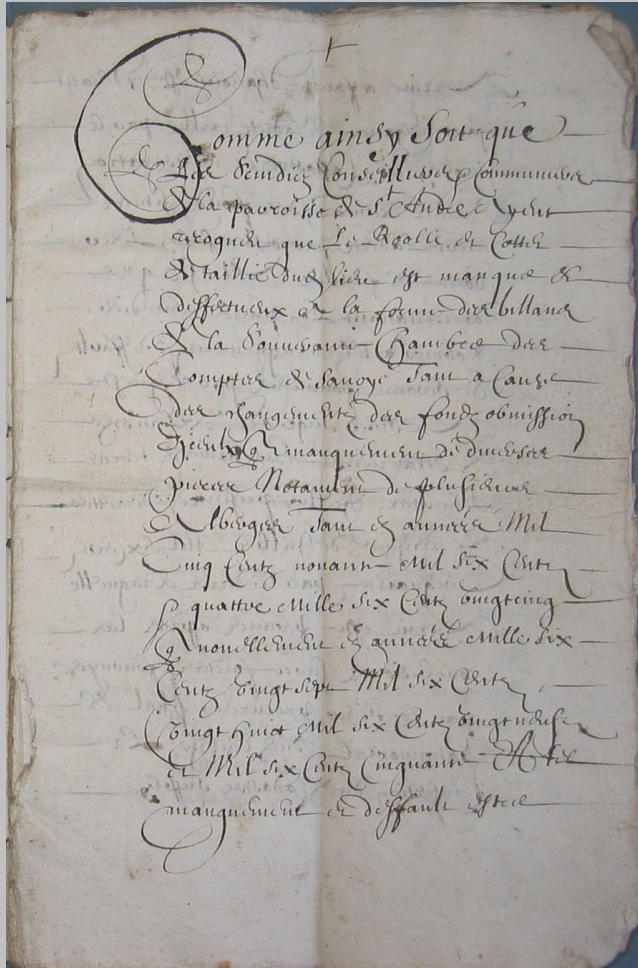 Comme ainsy soit que
Les scindicz conseilliers & communiers
de la parroisse de st Andre ayent
que Le Roolle et Cotte
de taillie dud lieu est manque &
deffectueux en la forme des billans
de la Souverain Chambre des
Comptes de Savoye Tant a Cause
des changementz des fondz obmission
d'iceulx & manquement de diverses
pieces Notament de plusieurs
Albergés Tant es années Mil
Cinq Centz nonante Mil six Centz
& quattre Mille six Centz vingtcinq
& nouvellement es années Mille six
Centz vingt sept Mil six Centz
vingt huict Mil six Centz vingtneufz
et Mil six Centz Cinquante
manquement et deffault estre